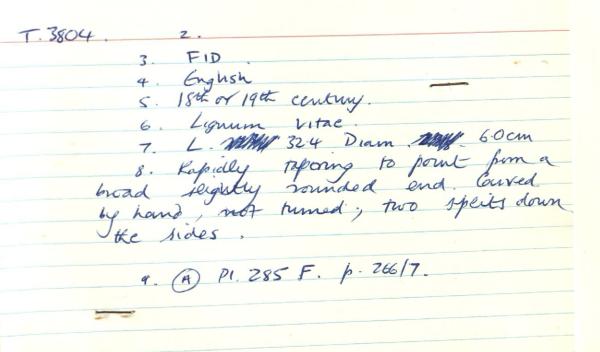 T. 3804. 2.
3. FID
4. English
5. 18th or 19th century.
6. Lignum vitae.
7. L. 32.4 Diam. 6.0cm
8. Rapidly tapering to point from a
broad slightly rounded end. Carved
by hand, not turned; two splits down
the sides.
9. (A) Pl. 285 F. p. 266/7.